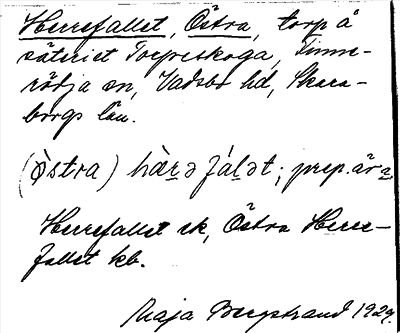 Herrefallet, Östra, torp å
säteriet Torpriskoga, Finne-
rödja sn, Vadsbo hd, Skara-
borgs län.
(östra) hàrə fálət; prep. är a
Herrefallet ek, Östra Herre-
fallet kb.
Maja Bergstrand 1929.